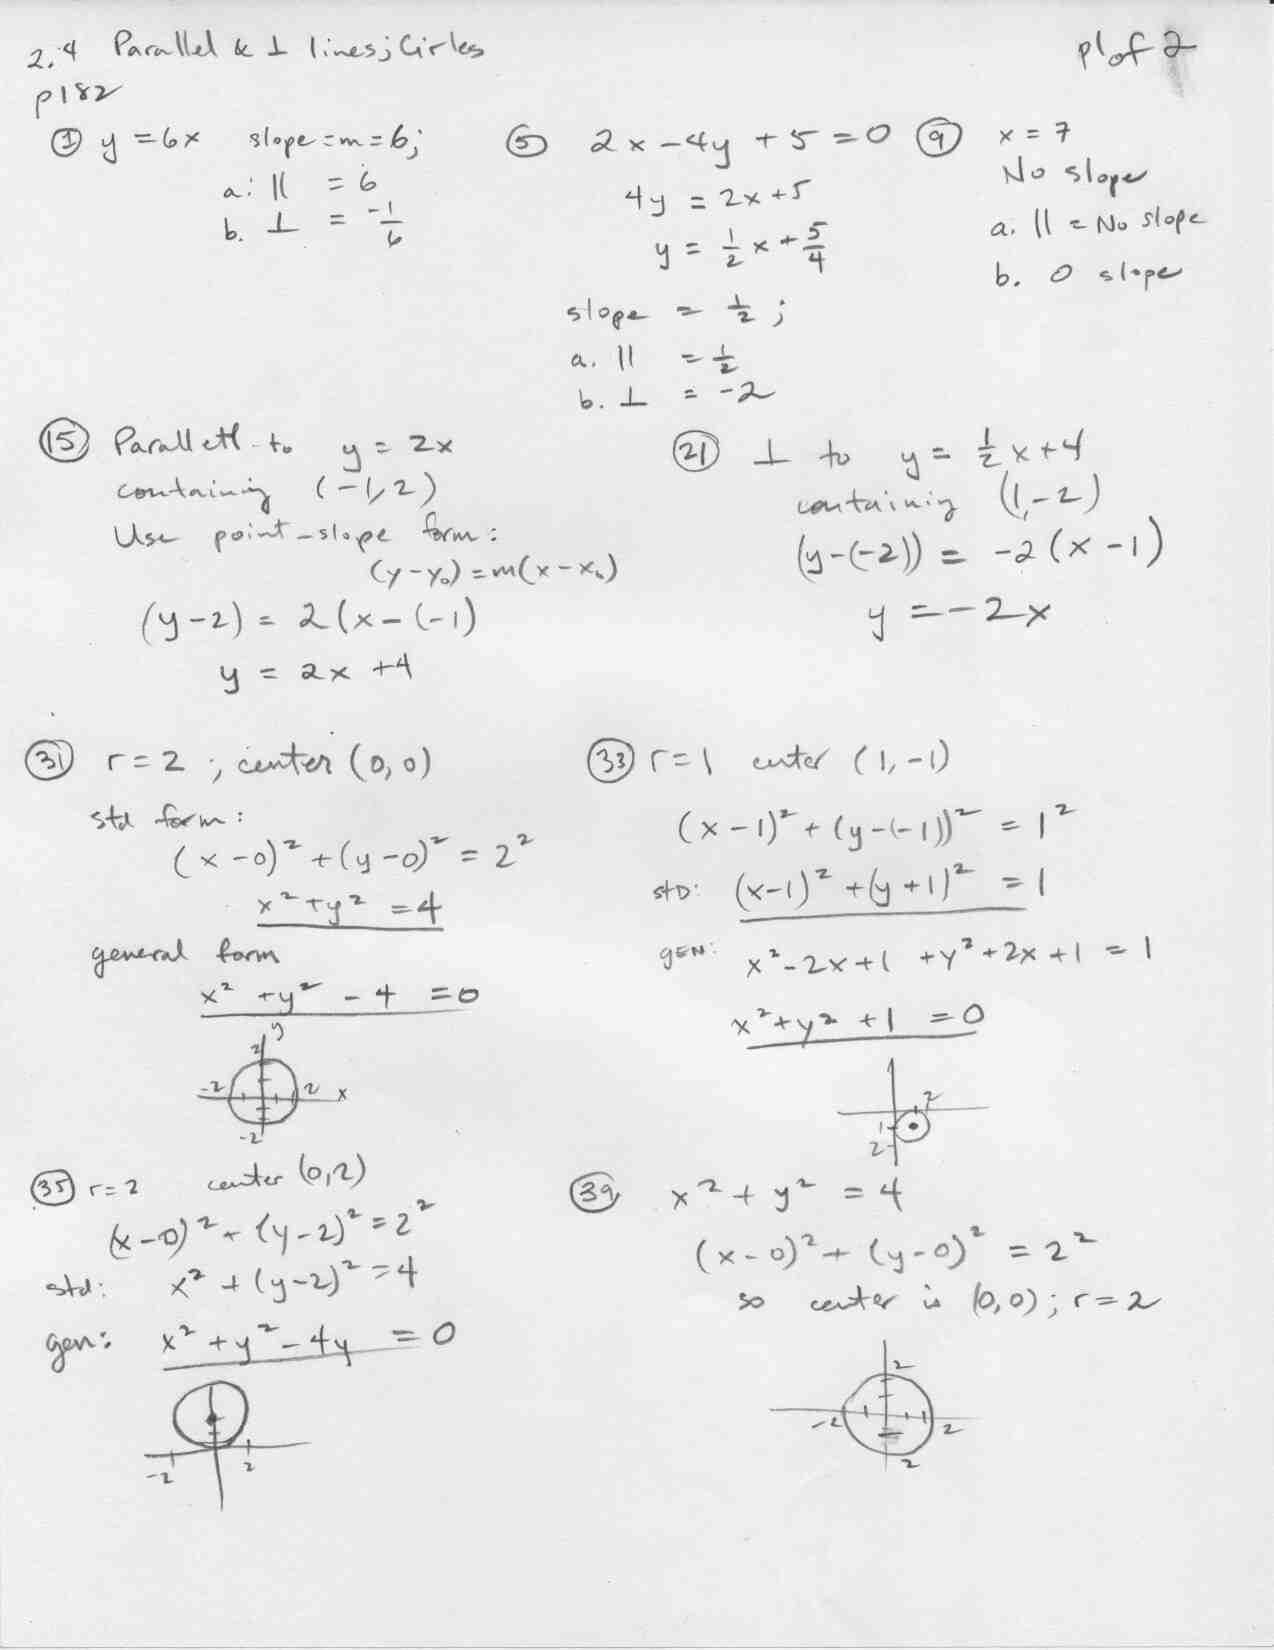 2.4 Parallel & ⊥ lines; Cirles
p1 of 2
p182
① y = 6x slope = m = 6;
a: || = 6
b. ⊥ = -1/6
⑤ 2x - 4y + 5 = 0
4y = 2x + 5
y = 1/2 x + 5/4
slope = 1/2 ;
a. || = 1/2
b. ⊥ = -2
⑨ x = 7
No slope
a. || = No slope
b. 0 slope
⑮ Parallel to y = 2x
containing (-1, 2)
Use point-slope form:
(y - y₀) = m(x - x₀)
(y - 2) = 2(x - (-1)
y = 2x + 4
㉑ ⊥ to y = 1/2 x + 4
containing (1, -2)
(y - (-2)) = -2(x - 1)
y = -2x
㉛ r = 2 ; center (0, 0)
std form:
(x - 0)² + (y - 0)² = 2²
x² + y² = 4
general form
x² + y² - 4 = 0
y
2
-2 2 x
-2
㉝ r = 1 center (1, -1)
(x - 1)² + (y - (-1))² = 1²
STD: (x - 1)² + (y + 1)² = 1
GEN: x² - 2x + 1 + y² + 2x + 1 = 1
x² + y² + 1 = 0
2
1
2
㉟ r = 2 center (0, 2)
(x - 0)² + (y - 2)² = 2²
std: x² + (y - 2)² = 4
gen: x² + y² - 4y = 0
-2 2
㊴ x² + y² = 4
(x - 0)² + (y - 0)² = 2²
so center is (0, 0); r = 2
2
-2 2
2